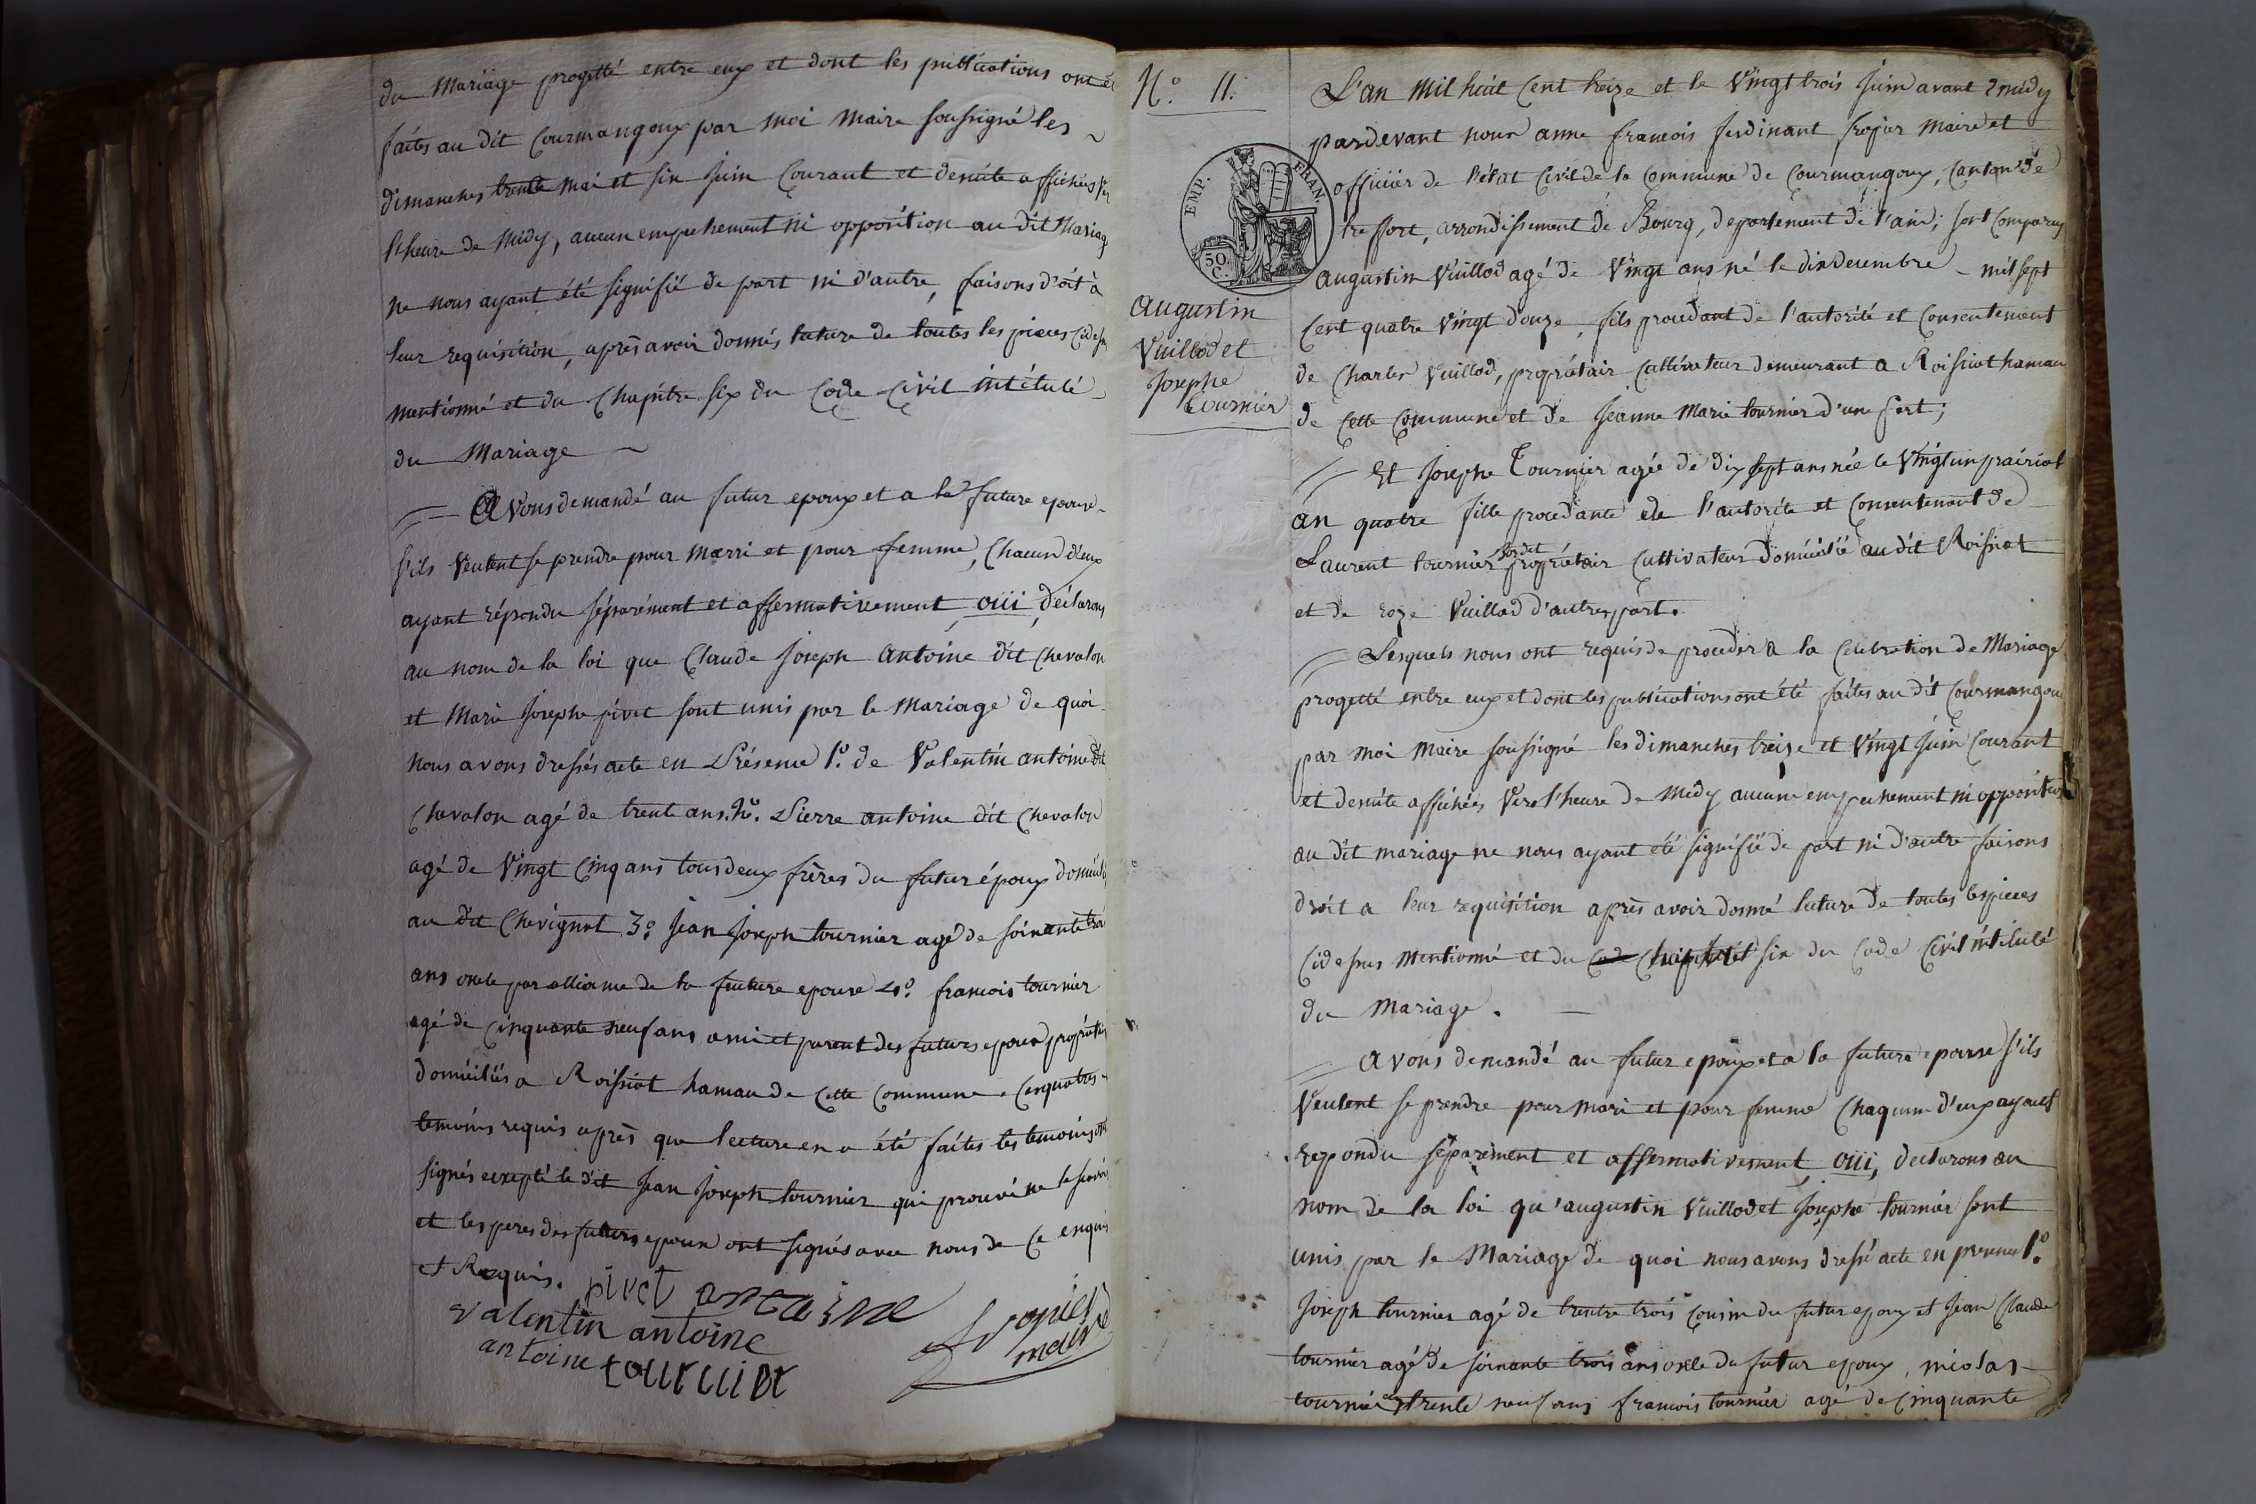 du Mariage progetté entre eux et dont les publications ont é
faites au dit Courmangoux par moi Maire soussigné les
dimanches trente mai et six juin Courant et de suite affichées
l'heure de Midy, aucun empechement ni opposition au dit Mariag
ne nous ayant été signifié de part ni d'autre, faisons d'oit à
leur requisition, après avoir donnés lecture de toutes les pieces Cidess
mentionné et du Chapitre six du Code Civil intitulé
du Mariage
Avons demandé au futur epoux et a la future epouse
s'ils veulent se prendre pour Marri et pour femme, Chacun d'eux
ayant répondu séparément et affermativement, oüi, déclarons
au nom de la loi que Claude Joseph Antoine dit Chevalon
et Marie Josephe pivet sont unis par le Mariage de quoi
nous avons dressés acte en Présence 1.º de Valentin antoine dit
Chevalon agé de trente ans. 2º. Pierre antoine dit Chevalon
agé de Vingt Cinq ans tous deux frères du futur époux domicilié
au dit Chevignat 3.º Jean Joseph tournier agé de soixante troi
ans oncle par alliance de la future epouse 4.º francois tournier
agé de Cinquante neuf ans ami et parent des futurs epoux propriétair
domiciliés a Roissiat hamau de Cette Commune. Cesquatres
temoins requis après que lecture en a été faites les temoins ont
signés excepté le dit Jean Joseph tournier qui prouvé ne le savoir
et les peres des futurs epoux ont signés avec nous de Ce enquis
et Requis.
pivet antoine
valentin antoine
antoine tournier
maire
N.º 11.
Augustin
Vuillod et
Josephe
Tournier
EMP. FRAN.
50 C.
L'an Mil huit Cent treize et le Vingt trois Juin avant midy
pardevant nous anne francois ferdinant maire et
officier de l'état Civil de la Commune de Courmangoux, Canton de
treffort, arrondissement de Bourg, departement de l'ain; sont Comparus
Augustin Vuillod agé de Vingt ans né le dix decembre mil sept
Cent quatre Vingt douze, fils procedant de l'autorité et Consentement
de Charles Vuillod, propriétair Cultivateur demeurant a Roissiat hamau
de Cette Commune et de Jeanne Marie tournier d'une part;
Et Josephe Tournier agée de dix sept ans née le Vingt un prairial
an quatre fille procedante de l'autorité et Consentement de
Laurent tournier propriétair Cultivateur domicilié au dit Roissiat
et de roze Vuillod d'autre part.
Lesquels nous ont requis de proceder a la Celebration de Mariage
progetté entre eux et dont les publications ont été faites au dit Courmangou
par moi Maire soussigné les dimanches treize et Vingt Juin Courant
et de suite affichées Vers l'heure de Midy aucune empechement ni opposition
au dit mariage ne nous ayant été signifié de part ni d'autre faisons
droit a leur requisition après avoir donné lecture de toutes les pieces
Cidessus Mentionné et du Chapitre six du Code Civil intitulé
du Mariage.
Avons demandé au futur epoux et à la future epouse s'ils
Veulent se prendre pour mari et pour femme Chaqum d'eux ayant
repondu séparément et affermativement, oüi, declarons au
nom de la loi qu'augustin Vuillod et Josephe tournier sont
unis par le Mariage de quoi nous avons dressé acte en presence 1.º
Joseph tournier agé de trentre trois Cousin du futur epoux et Jean Claude
tournier agé de soixante trois ans oncle du futur epoux, nicolas
tournier trente neuf ans francois tournier agé de Cinquante